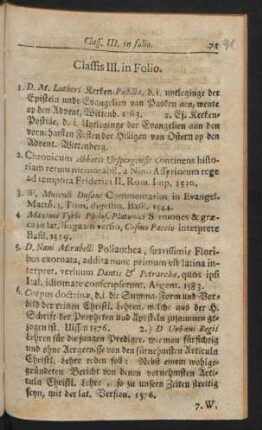 Class. III. in folio. 71
91
Classis III. in Folio.
1. D. M. Lutheri Kerken-Postilla, d. i. utleginge der
Episteln unde Evangelien van Paschen aen, wente
op den Advent, Wittenb. 1563. 2. Ej. Kerken-
Postille, d. i. Utleginge der Evangelien aan den
vornehmsten Festen der Hilligen van Ostern op den
Advent. Wittenberg.
2. Chronicum Abbatis Urspergensis continens histo
riam rerum memorabil. a Nino Assyriorum rege
ad tempora Friderici II. Rom. Imp. 1540.
3. W. Musculi Dusani Commentarii in Evangel.
Matth. 1. Tom. digestus. Basil. 1544.
4. Maximi Tyrii Philos. Platonici Sermones & græ-
ca in lat. linguam versio, Cosmo Paccio interprete
Basil. 1519.
5. D. Nani Mirabelli Polianthea, suavissimis Flori
bus exornata, addita nunc primum est latina in-
terpret. versuum Dantis & Petrarchæ, quos ipsi
Ital. idiomate conscripserunt. Argent. 1583.
6. Corpus doctrinæ, d. i. die Summa, Form und Vor-
bild der reinen Christl. Lehre, welche aus der H.
Schrifft der Propheten und Aposteln zusammen an-
zogen ist. Ulssen 1576. 2.) D Urbani Regii
lehren für die jungen Prediger, wie man fürsichtig
und ohne Aergernisse von den fürnehmsten Articuln
Christl. Lehre reden soll: Nebst einem wohlge-
gründeten Bericht von denen vornehmsten Arti-
culn Christl. Lehre, so zu unsern Zeiten streitig
seyn, mit der lat. Version. 1576.
7. W.